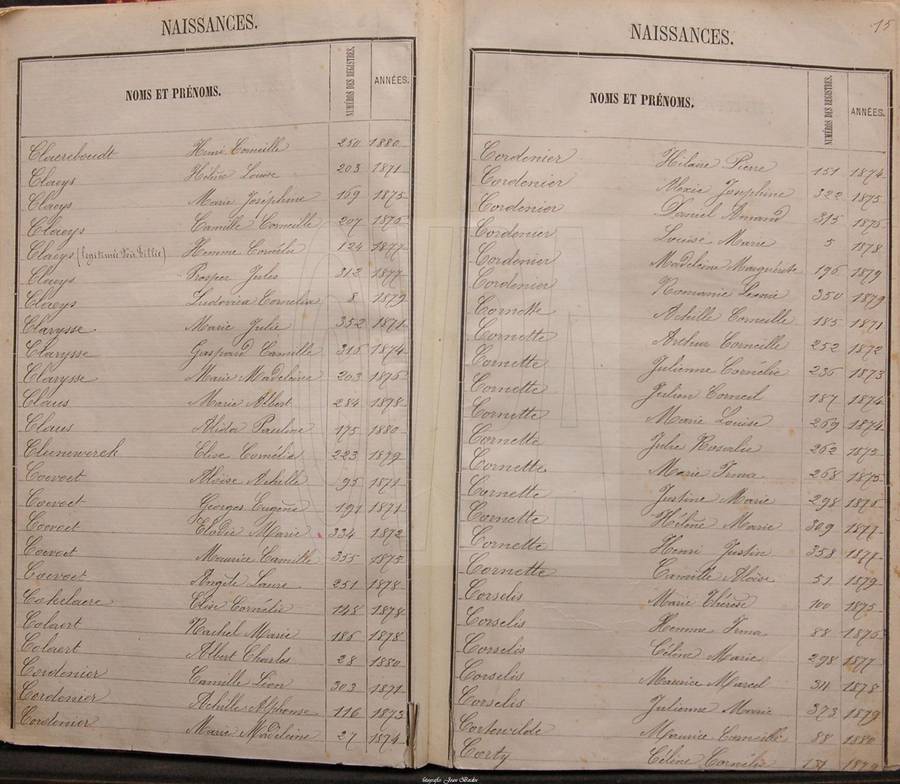 NAISSANCES.
NOMS ET PRÉNOMS. NUMÉROS DES REGISTRES. ANNÉES.
Claereboudt Henri Corneille 250 1880
Claeys Helena Louise 203 1871
Claeys Marie Joséphine 169 1875
Claeys Camille Corneille 207 1876
Claeys (legitimée 124 1877
Claeys Prosper Jules 312 1877
Claeys Ludovica Cornelia 8 1879
Clarysse Marie Julie 352 1871
Clarysse Gaspard Camille 316 1874
Clarysse Marie Madeleine 203 1876
Claus Marie Albert 284 1878
Claus Alida Pauline 175 1880
Cluumverck Elise Cornélie 223 1879
Coevoet Aloïse Achille 95 1871
Coevoet Georges Eugène 191 1871
Coevoet Elodie Marie 334 1872
Coevoet Maurice Camille 355 1875
Coevoet Angèle Laure 251 1878
Cokelaere Elise Cornélie 148 1878
Colaert Rachel Marie 186 1878
Colaert Albert Charles 28 1880
Cordenier Camille Léon 303 1871
Cordenier Achille Alphonse 116 1873
Cordenier Marie Madeleine 27 1874
NAISSANCES. 15
NOMS ET PRÉNOMS. NUMÉROS DES REGISTRES. ANNÉES.
Cordenier Hilaire Pierre 151 1874
Cordenier Alexis Joséphine 322 1875
Cordenier Daniel Amand 315 1876
Cordenier Louise Marie 5 1878
Cordenier Madeleine Marguérite 196 1879
Cordenier Romanie Leonie 350 1879
Cornette Achille Corneille 185 1871
Cornette Arthur Corneille 252 1872
Cornette Julienne Cornélie 236 1873
Cornette Julien Corneil 187 1874
Cornette Marie Louise 269 1874
Cornette Julie Rosalie 262 1875
Cornette Marie Irma 268 1875
Cornette Justine Marie 298 1876
Cornette Hélène Marie 309 1877
Cornette Henri Justin 358 1877
Cornette Camille Aloïse 51 1879
Corselis Marie Thérèse 100 1875
Corselis Irma 88 1876
Corselis Céline Marie 298 1877
Corselis Maurice Marcel 34 1878
Corselis Julienne Marie 373 1879
Cortewilde Maurice Corneille 88 1880
Corty Céline Cornélie
fotografie Joan Becke